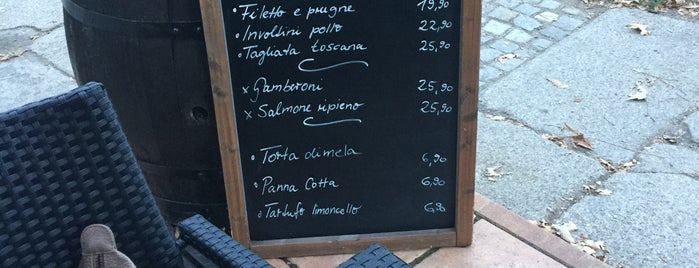 • Filetto e prugne 19,90
• Involtini pollo 22,90
• Tagliata toscana 25,90
x Gamberoni 25,90
x Salmone ripieno 25,90
• Torta di mela 6,90
• Panna Cotta 6,90
• Tartufo limoncello 6,90